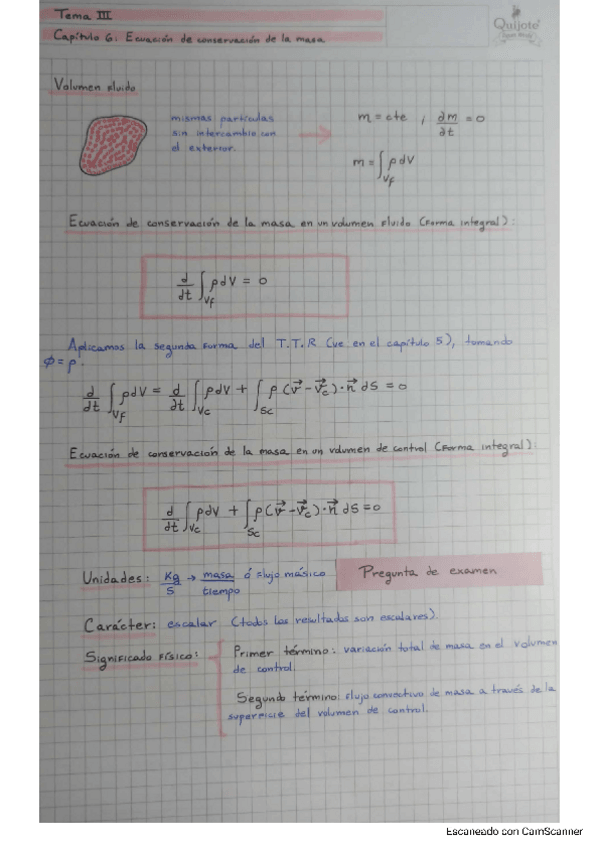 Tema III
Capítulo 6: Ecuación de conservación de la masa
Quijote
Volumen fluido
mismas partículas
sin intercambio con
el exterior.
m = cte , ∂m/∂t = 0
m = ∫_Vf ρdV
Ecuación de conservación de la masa en un volumen fluido (Forma integral):
d/dt ∫_Vf ρdV = 0
Aplicamos la segunda forma del T.T.R (ve en el capítulo 5), tomando
Φ = ρ.
d/dt ∫_Vf ρdV = d/dt ∫_Vc ρdV + ∫_Sc ρ(v⃗ - v⃗c)·n⃗ dS = 0
Ecuación de conservación de la masa en un volumen de control (Forma integral):
d/dt ∫_Vc ρdV + ∫_Sc ρ(v⃗ - v⃗c)·n⃗ dS = 0
Unidades: Kg/s → masa/tiempo ó flujo másico
Pregunta de examen
Carácter: escalar (todos los resultados son escalares).
Significado físico:
Primer término: variación total de masa en el volumen
de control.
Segundo término: flujo convectivo de masa a través de la
superficie del volumen de control.
Escaneado con CamScanner